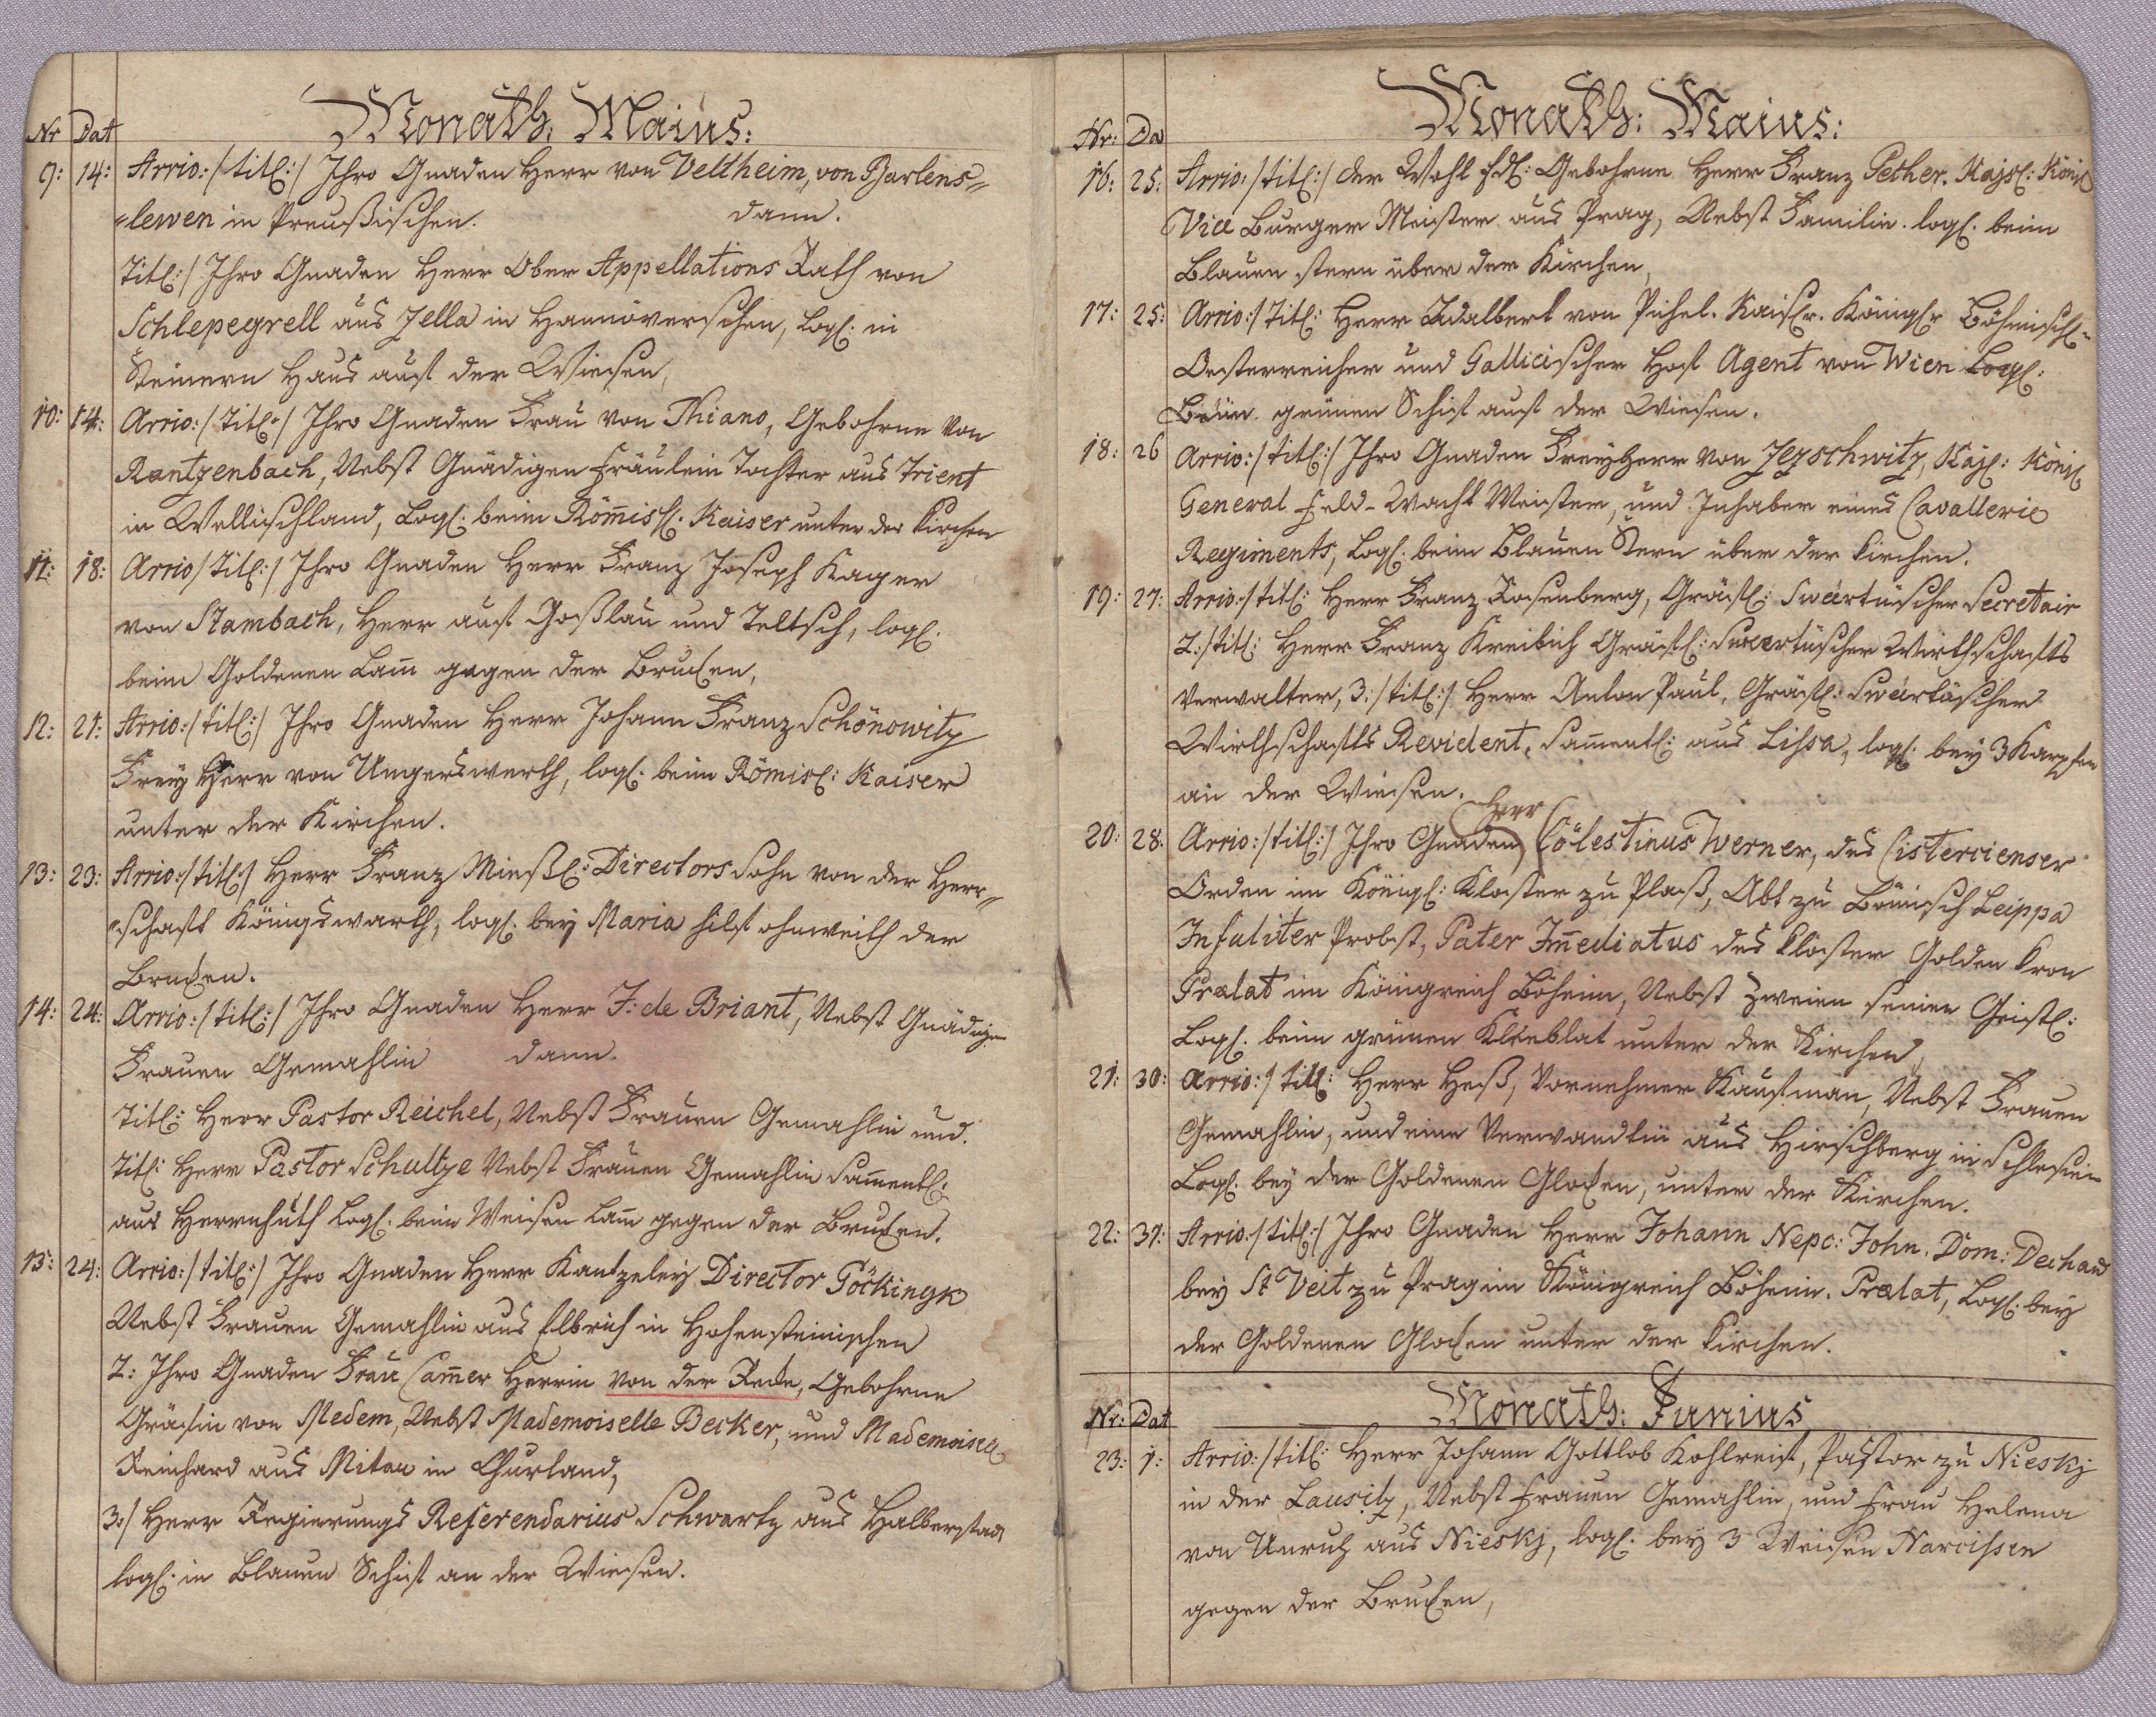 Monath: Maius:
Nr Dat
9: 14: Arrio: /: titl: / Ihro Gnaden Herr von Veltheim, von Barlens=
=lewen in Preußischen. dann.
Titl: / Ihro Gnaden Herr Ober Appellations Rath von
Schlepegrell aus Zella in Hannöverschen, Log: in
Steinern Haus auf der Wiesen,
10: 14: Arrio: / Titl: / Ihro Gnaden Frau von Thiano, Gebohrne von
Rantzenbach, Nebst Gnädigen Fräulein Tochter aus Trient
in Wellischland, Log: beim Römisl: Kaiser unter der Kirchen
11: 18: Arrio / Titl: / Ihro Gnaden Herr Franz Joseph Kager
von Stambach, Herr auf Goßlau und Teltsch, log:
beim Goldenen Lam gegen der Brucken,
12: 21: Arrio: / titl: / Ihro Gnaden Herr Johann Franz Schönowitz
Frey Herr von Ungerswerth, log: beim Römisl: Kaiser
unter der Kirchen.
13: 23: Arrio: / titl: / Herr Franz Mießl: Directors Sohn von der Herr=
=schaft Königswarth, log: bey Maria hilf ohnweith der
Brucken.
14: 24: Arrio: / titl: / Ihro Gnaden Herr J: de Briant, Nebst Gnädigen
Frauen Gemahlin dann.
Titl: Herr Pastor Reichel, Nebst Frauen Gemahlin und.
Titl: Herr Pastor Schultze Nebst Frauen Gemahlin Samentl:
aus Herrnhuth Log: beim Weisen Lam gegen der Brucken.
15: 24: Arrio: / titl: / Ihro Gnaden Herr Kantzeley Director Göckingk
Nebst Frauen Gemahlin aus Elbrich in Hohensteinischen
2: Ihro Gnaden Frau Camer Herrin von der Recke, Gebohrne
Gräfin von Medem, Nebst Mademoiselle Becker, und Mademoisel
Reinhard aus Mitau in Churland,
3: / Herr Regierungs Referendarius Schwartz aus Halberstadt
log: in Blauen Schif an der Wiesen.
Monath: Maius:
Nr: Da
16: 25: Arrio: / titl: / der Wohl Edl: Gebohrne Herr Franz Pether. Kaysl: Königl
Vice Burger Meister aus Prag, Nebst Familie. log: beim
Blauen Stern über der Kirchen,
17: 25: Arrio: / Titl: Herr Adalbert von Pichel. Kaislr. Königlr Böhmischl=
Oesterreicher und Gallicischer Hof Agent von Wien Log:
Beim grünen Schif auf der Wiesen.
18: 26 Arrio: / titl: / Ihro Gnaden FreyHerr von Zezschwitz, Kayl: Königl
General Feld-Wacht Meister, und Inhaber eines Cavallerie
Regiments, Log: beim Blauen Stern über der Kirchen.
19: 27: Arrio: / titl: Herr Franz Rosenberg, Gräfl: Sweertüscher Secretair
2: / titl: Herr Franz Kreibich Gräfl: Sweertüscher Wirthschafts
Verwalter, 3: / titl: / Herr Anton Paul, Gräfl: Sweertüscher
Wirthschafts Revident, Samentl: aus Lissa, log: bey 3 Karpfen
an der Wiesen.
20: 28: Arrio: / titl: / Ihro Gnaden Herr Cölestinus Werner, des Cistercienser
Orden im Königl: Kloster zu Plaß, Abt zu Bömisch Leippa
Infuliter Probst, Pater Imediatus des Kloster Golden Cron
Prælat im Königreich Böheim, Nebst Zweien seinen Geistl:
Log: beim grünen Kleeblat unter der Kirchen,
21: 30: Arrio: / titl: Herr Heß, Vornehmer Kaufman, Nebst Frauen
Gemahlin, und eine Verwandtin aus Hirschberg in Schlesien
Log: bey der Goldenen Glocken, unter der Kirchen.
22: 31: Arrio: / titl: / Ihro Gnaden Herr Johann Nepo: John. Dom: Dechand
bey St Veit zu Prag im Königreich Böheim. Prælat, Log: bey
der Goldenen Glocken unter der Kirchen.
Monath: Junius
Nr: Dat
23: 1: Arrio: / titl: Herr Johann Gottlob Kohlreif, Pastor zu Niesky
in der Lausitz, Nebst Frauen Gemahlin, und Frau Helena
von Unruh aus Niesky, log: bey 3 Weisen Narcissen
gegen der Brucken,